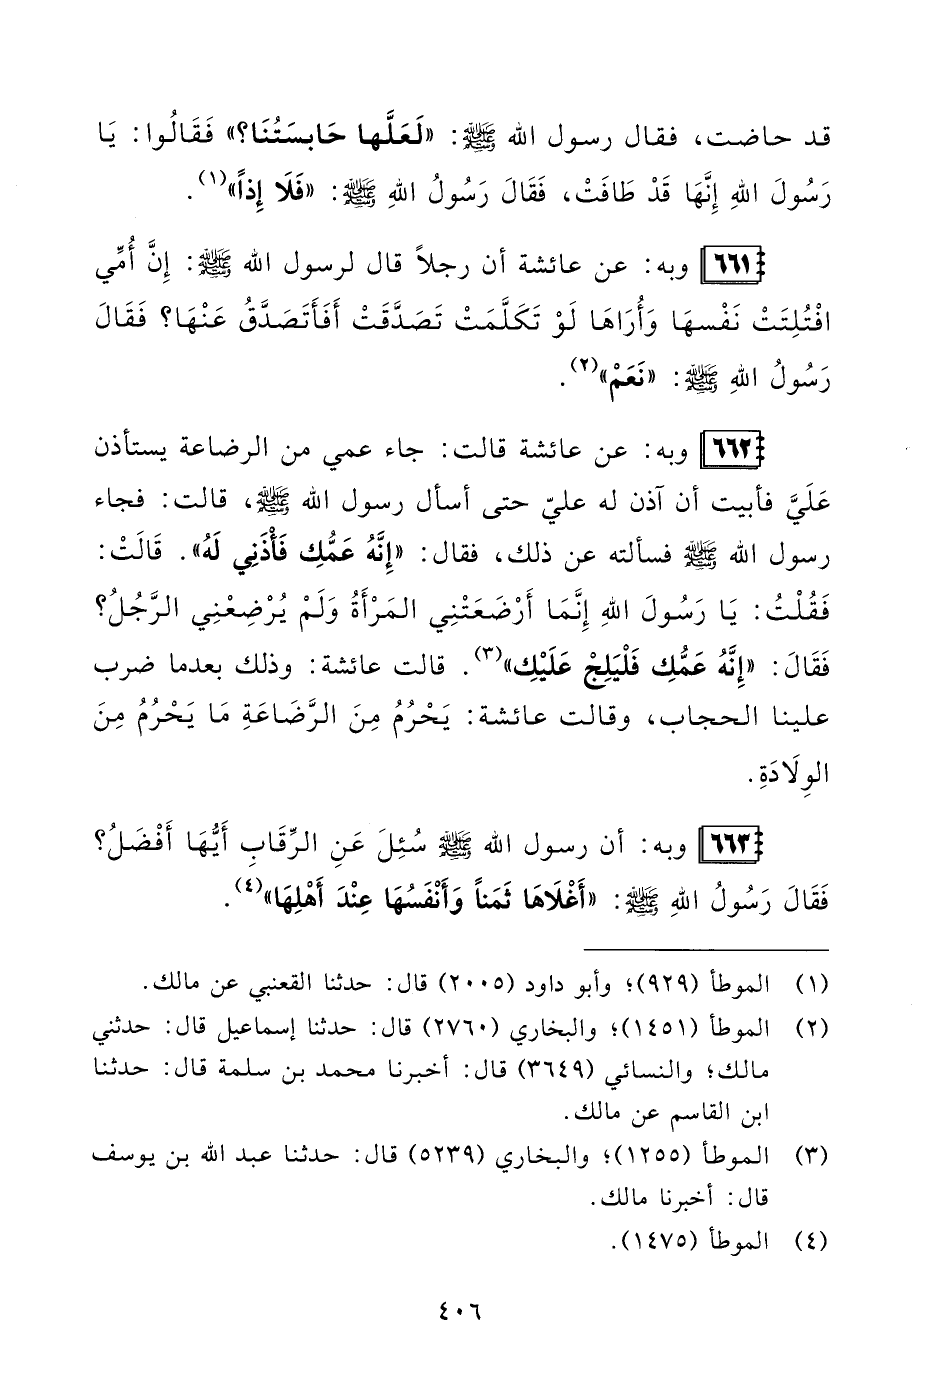 قد حاضت، فقال رسول الله ﷺ: «لَعَلَّها حَابسَتُنَا؟» فَقَالُوا: يَا
رَسُولَ اللهِ إِنَّهَا قَدْ طَافَتْ، فَقَالَ رَسُولُ اللهِ ﷺ: «فَلَا إِذاً»(١).
٦٦١ وبه: عن عائشة أن رجلاً قال لرسول الله ﷺ: إِنَّ أُمِّي
افْتُلِتَتْ نَفْسهَا وَأُرَاهَا لَوْ تَكَلَّمَتْ تَصَدَّقَتْ أَفَأَتَصَدَّقُ عَنْهَا؟ فَقَالَ
رَسُولُ اللهِ ﷺ: «نَعَمْ»(٢).
٦٦٢ وبه: عن عائشة قالت: جاء عمي من الرضاعة يستأذن
عَلَيَّ فأبيت أن آذن له عليّ حتى أسأل رسول الله ﷺ، قالت: فجاء
رسول الله ﷺ فسألته عن ذلك، فقال: «إِنَّهُ عَمُّكِ فَأْذَنِي لَهُ». قَالَتْ:
فَقُلْتُ: يَا رَسُولَ اللهِ إِنَّمَا أَرْضَعَتْنِي المَرْأَةُ وَلَمْ يُرْضِعْنِي الرَّجُلُ؟
فَقَالَ: «إِنَّهُ عَمُّكِ فَلْيَلِجْ عَلَيْكِ»(٣). قالت عائشة: وذلك بعدما ضرب
علينا الحجاب، وقالت عائشة: يَحْرُمُ مِنَ الرَّضَاعَةِ مَا يَحْرُمُ مِنَ
الوِلَادَةِ.
٦٦٣ وبه: أن رسول الله ﷺ سُئِلَ عَنِ الرِّقَابِ أَيُّهَا أَفْضَلُ؟
فَقَالَ رَسُولُ اللهِ ﷺ: «أَغْلَاهَا ثَمَناً وَأَنْفَسُهَا عِنْدَ أَهْلِهَا»(٤).
(١) الموطأ (٩٢٩)؛ وأبو داود (٢٠٠٥) قال: حدثنا القعنبي عن مالك.
(٢) الموطأ (١٤٥١)؛ والبخاري (٢٧٦٠) قال: حدثنا إسماعيل قال: حدثني
مالك؛ والنسائي (٣٦٤٩) قال: أخبرنا محمد بن سلمة قال: حدثنا
ابن القاسم عن مالك.
(٣) الموطأ (١٢٥٥)؛ والبخاري (٥٢٣٩) قال: حدثنا عبد الله بن يوسف
قال: أخبرنا مالك.
(٤) الموطأ (١٤٧٥).
٤٠٦